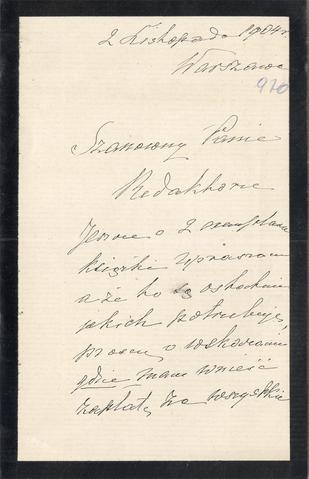 2 Listopada 1904 r.
Warszawa
920
Szanowny Panie
Redaktorze
Jeszcze o 2 exemplarze
książki upraszam
a że to są ostatnie
jakich potrzebuję,
proszę o wskazanie
gdzie mam wnieść
zapłatę za wszystkie